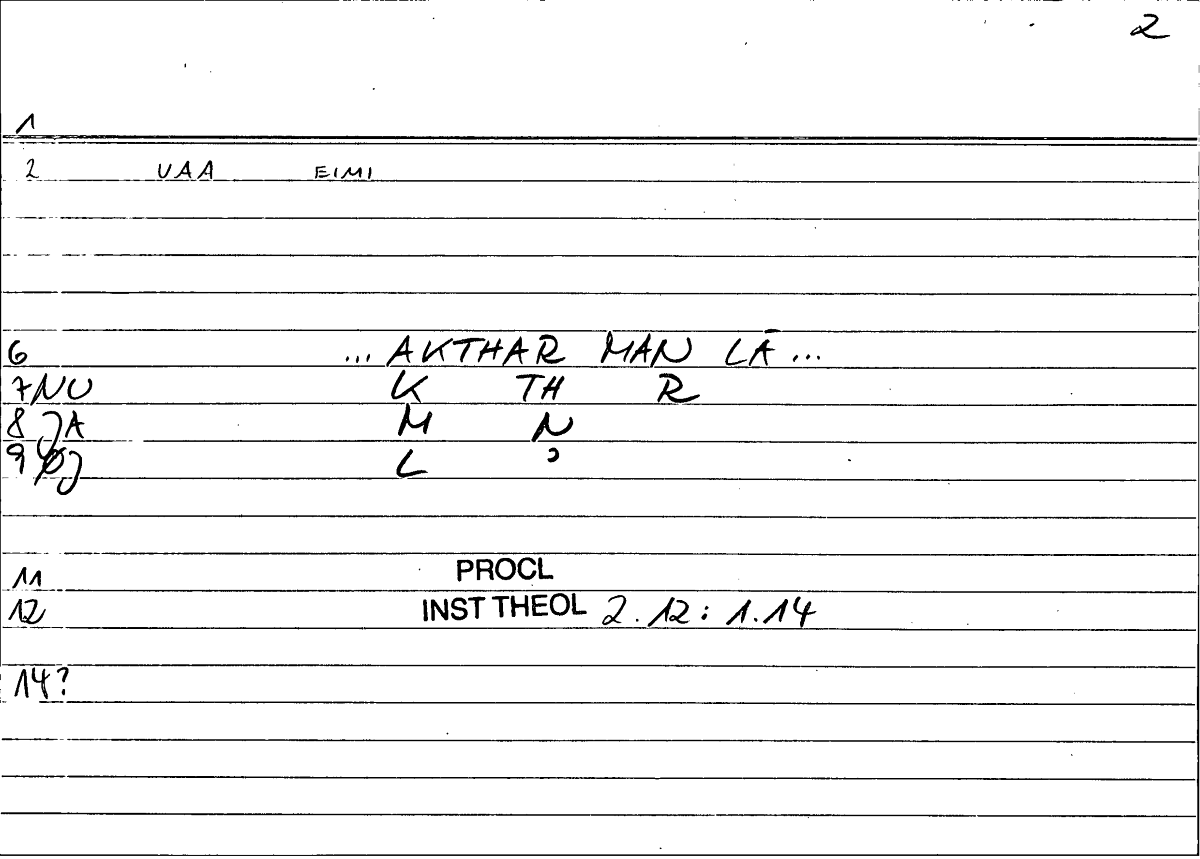 2
1
2 VAA EIMI
6 ... AKTHAR MAN LĀ ...
7 NU K TH R
8 JA M N
9 ØJ L ɔ
11 PROCL
12 INST THEOL 2.12: 1.14
14?